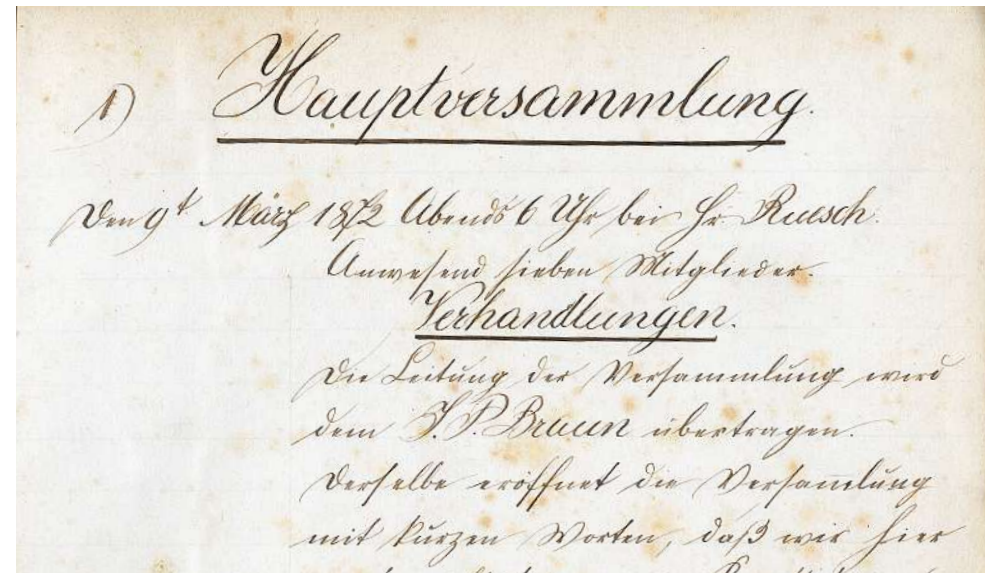 1) Hauptversammlung.
Den 9t März 1872 Abends 6 Uhr bei Hr. Ruesch.
Anwesend sieben Mitglieder.
Verhandlungen.
Die Leitung der Versammlung wird
dem J. P. Braun übertragen.
Derselbe eröffnet die Versammlung
mit kurzen Worten, daß wir hier